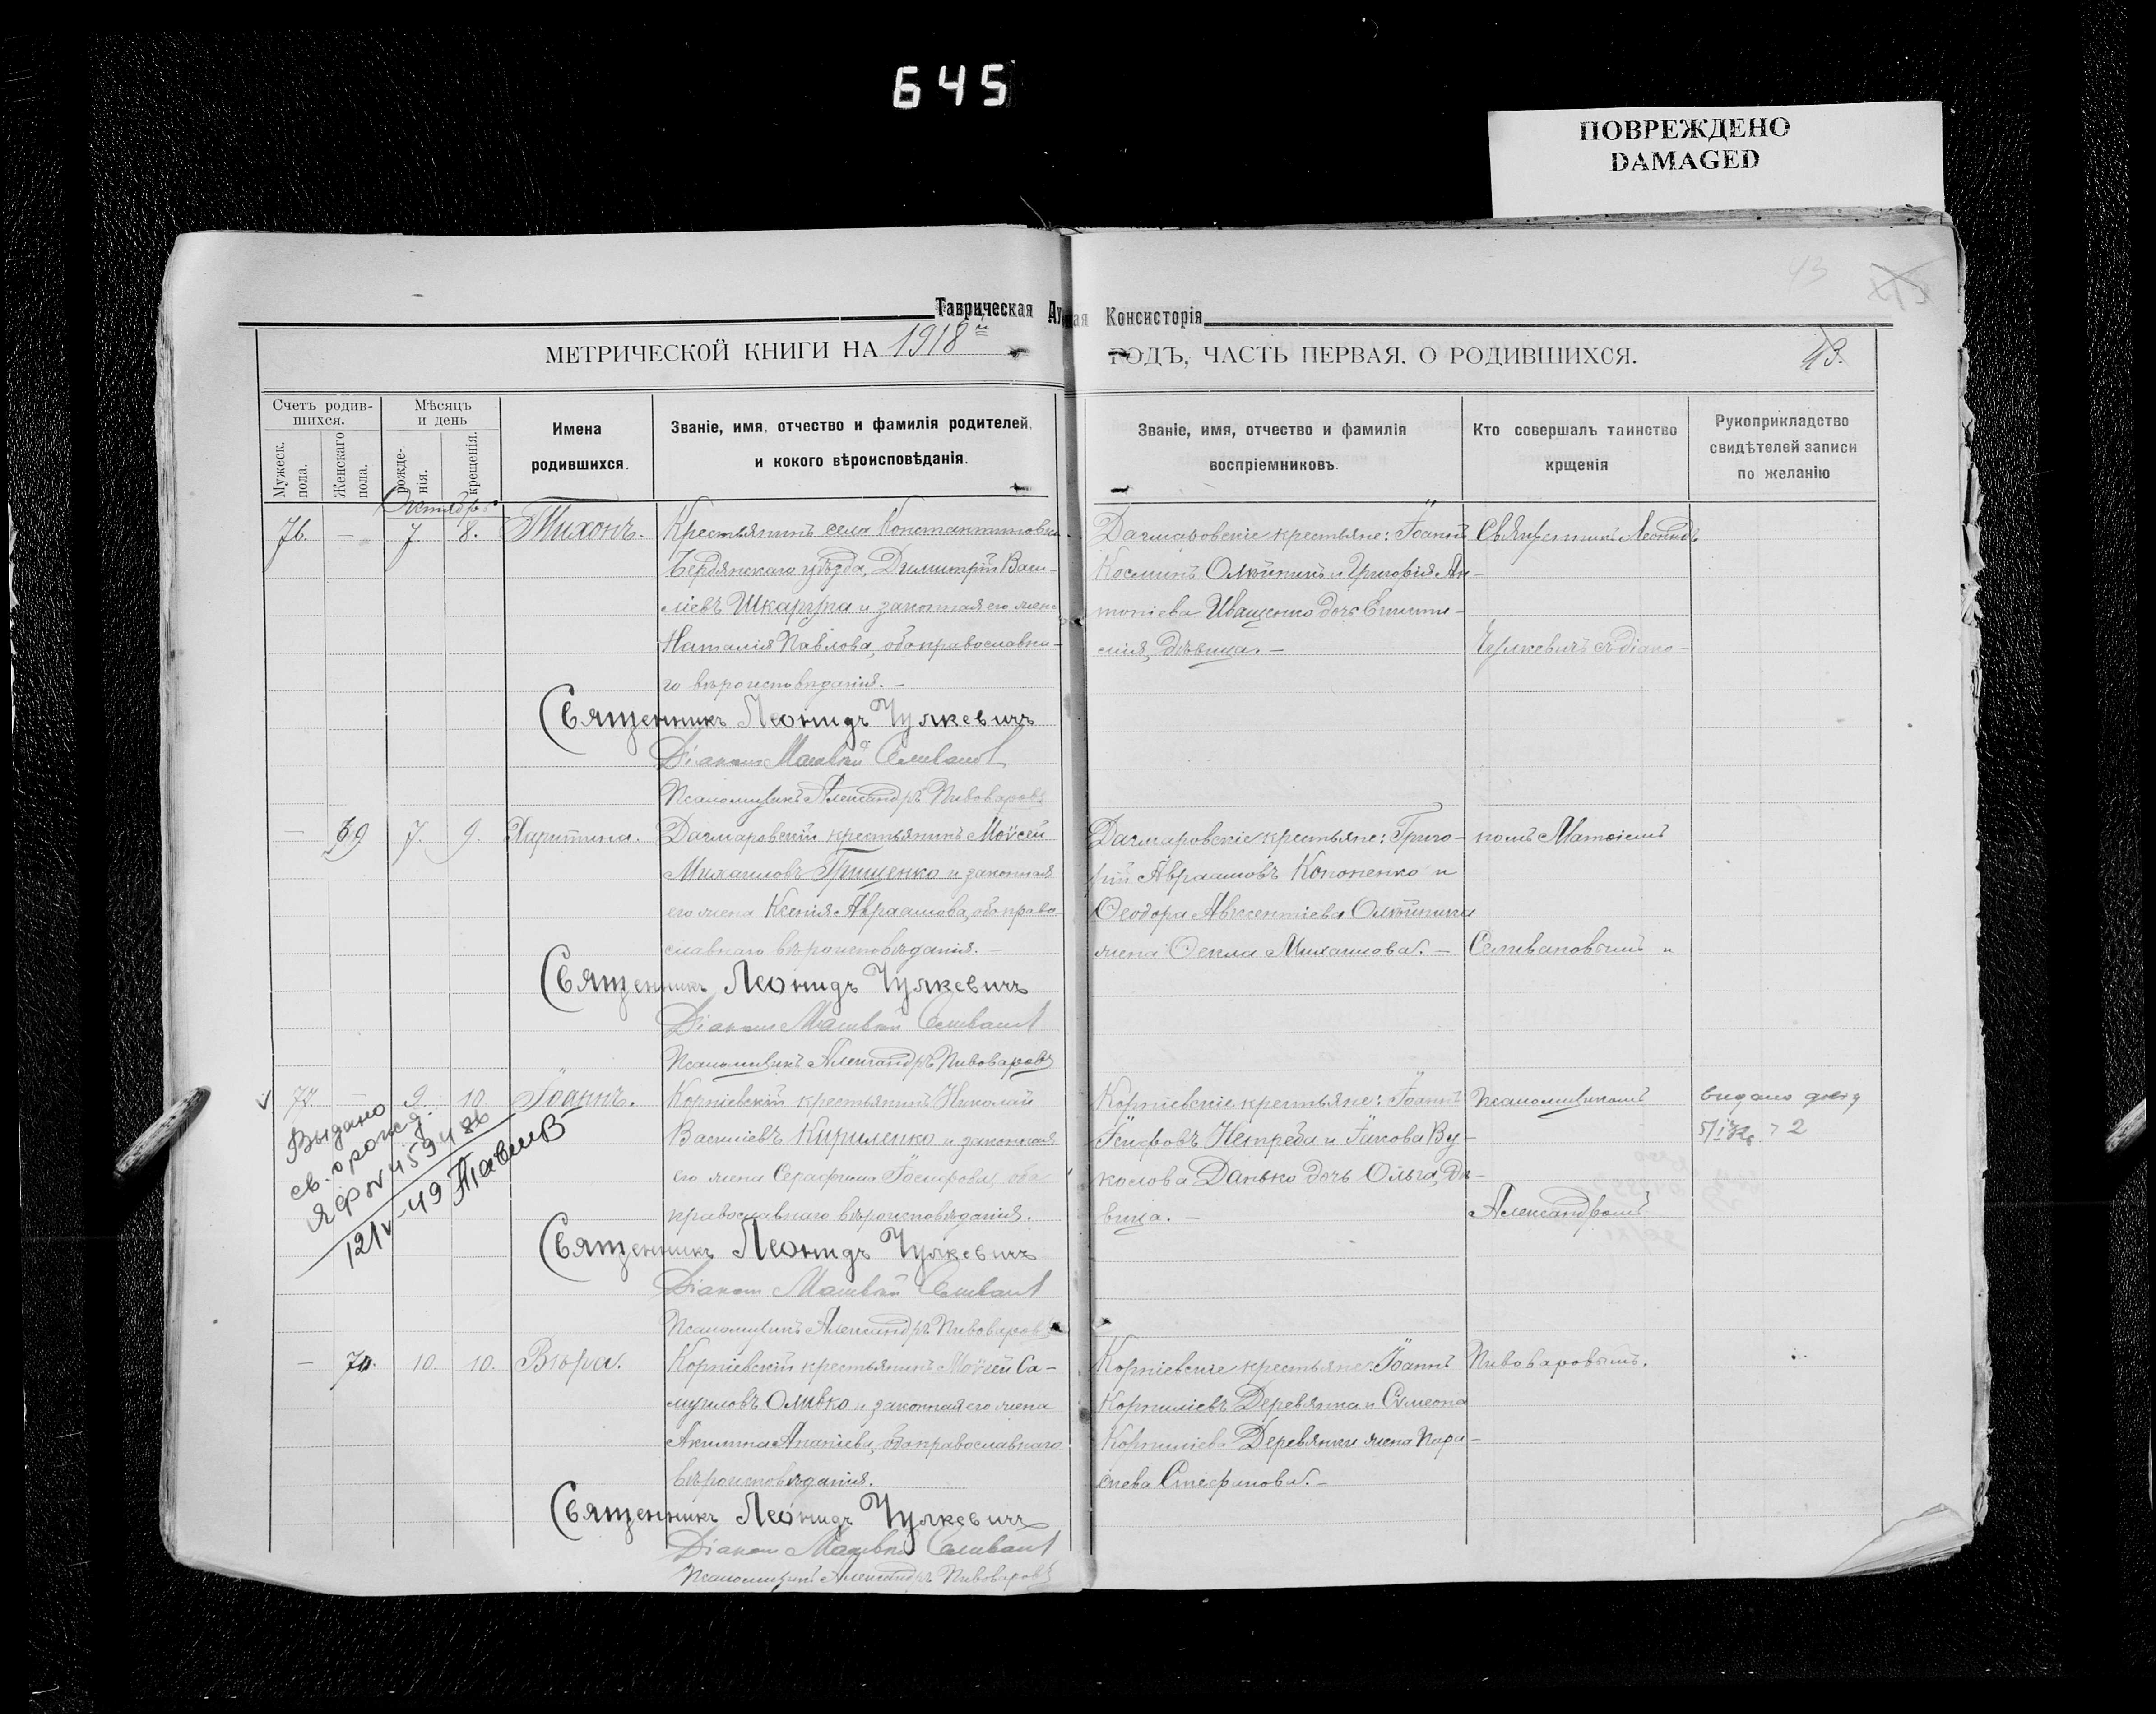 645
ПОВРЕЖДЕНО
DAMAGED
43
Таврическая Духовная Консисторія
МЕТРИЧЕСКОЙ КНИГИ НА 1918й ГОДЪ, ЧАСТЬ ПЕРВАЯ, О РОДИВШИХСЯ.
43.
Счетъ родив-
шихся.
Мужеск. пола.
Женскаго пола.
Мѣсяцъ
и день
рожде-
нія.
крещенія.
Имена
родившихся.
Званіе, имя, отчество и фамилія родителей,
и кокого вѣроисповѣданія.
Званіе, имя, отчество и фамилія
воспріемниковъ.
Кто совершалъ таинство
крщенія
Рукоприкладство
свидѣтелей записи
по желанію
Октябрь
76. — 7 8. Тихонъ.
Крестьянинъ села Константиновки
Бердянскаго уѣзда, Димитрій Васи-
ліевъ Шкарупа и законная его жена
Наталія Павлова, оба православна-
го вѣроисповѣданія. —
Священникъ Леонидъ Чулкевичъ
Діаконъ Матвѣй Селивановъ
Псаломщикъ Александръ Пивоваровъ
Дагмаровскіе крестьяне: Іоаннъ
Косминъ Олѣйникъ и Григорія Ан-
тоніева Иващенко дочь Еписти-
мія, дѣвица. —
Священникъ Леонидъ
Чулкевичъ съ діако-
— 69 7. 9. Харитина.
Дагмаровскій крестьянинъ Моѵсей
Михаиловъ Грищенко и законная
его жена Ксенія Авраамова, оба право-
славнаго вѣроисповѣданія. —
Священникъ Леонидъ Чулкевичъ
Діаконъ Матвѣй Селивановъ
Псаломщикъ Александръ Пивоваровъ
Дагмаровскіе крестьяне: Григо-
рій Авраамовъ Кононенко и
Ѳеодора Авксентіева Олѣйника
жена Ѳекла Михаилова. —
номъ Матѳіемъ
Селивановымъ и
77. — 9. 10 Іоаннъ.
Корніевскій крестьянинъ Николай
Василіевъ Кириленко и законная
его жена Серафима Іосифова, оба
православнаго вѣроисповѣданія.
Священникъ Леонидъ Чулкевичъ
Діаконъ Матвѣй Селивановъ
Псаломщикъ Александръ Пивоваровъ
Корніевскіе крестьяне: Іоаннъ
Іосифовъ Нетреба и Іакова Ву-
колова Данько дочь Ольга, дѣ-
вица. —
Псаломщикомъ
Александромъ
Выдано
св. о рожд.
ЯФ № 459486
12/V-49
— 70. 10. 10. Вѣра.
Корніевскій крестьянинъ Моѵсей Са-
муиловъ Оливко и законная его жена
Акилина Ананіева, оба православнаго
вѣроисповѣданія.
Священникъ Леонидъ Чулкевичъ
Діаконъ Матвѣй Селивановъ
Псаломщикъ Александръ Пивоваровъ
Корніевскіе крестьяне: Іоаннъ
Корниліевъ Деревянка и Сѵмеона
Корниліева Деревянки жена Пара-
скева Стефанова. —
Пивоваровымъ.